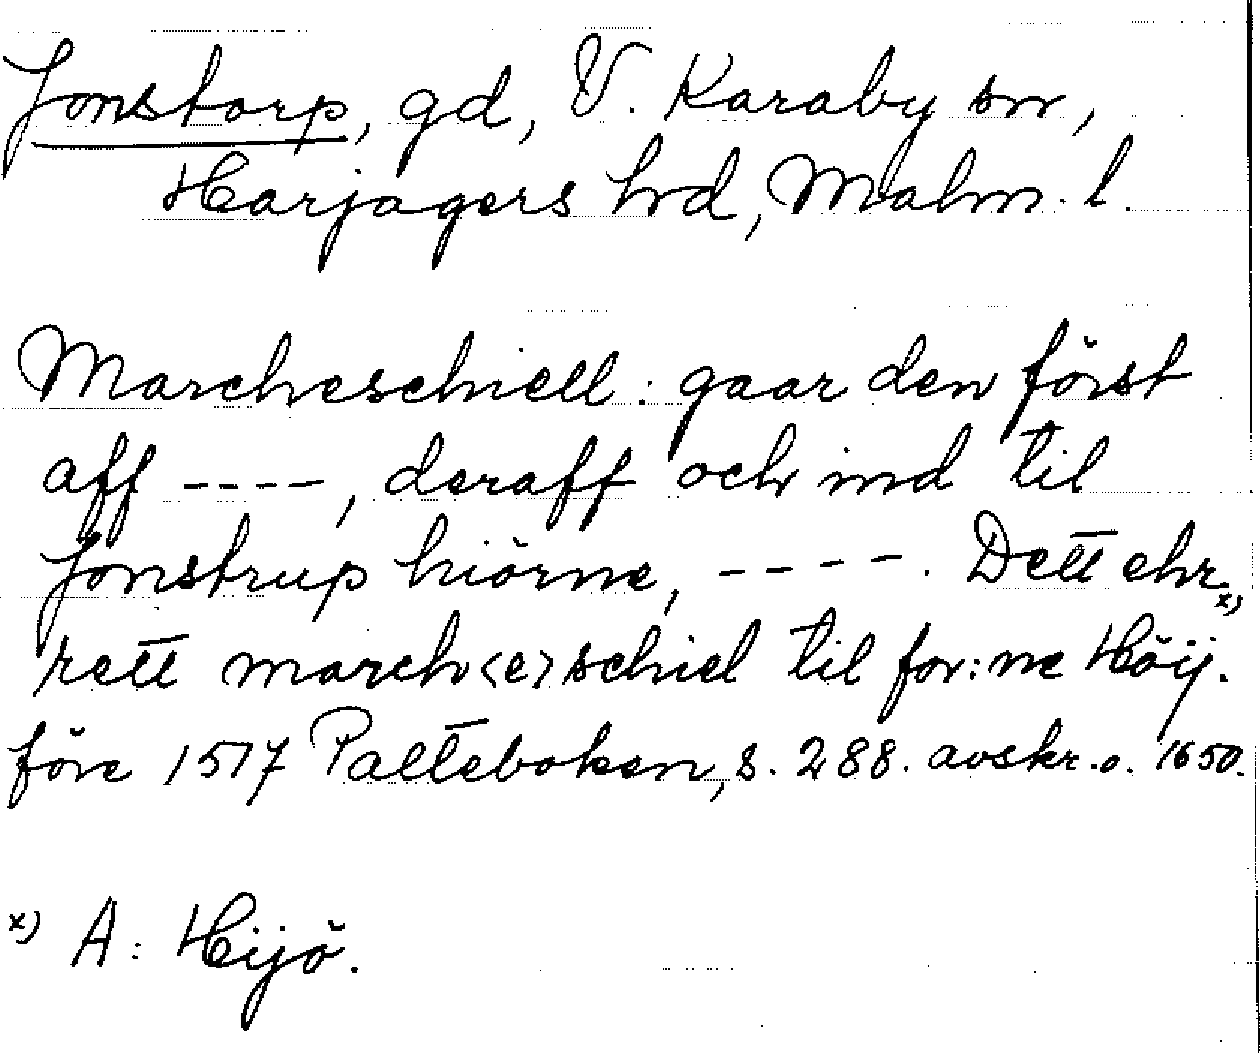 Jonstorp, gd, V. Karaby sn,
Harjagers hd, Malm. l.
Marcheschiell: gaar den först
aff ----, deraff och ind til
Jonstrup hiörne, ----. Dett ehr
rett march<e>schiel til for:ne Höij. x)
före 1517 Palteboken, s. 288. avskr. o. 1650.
x) A: Hijö.